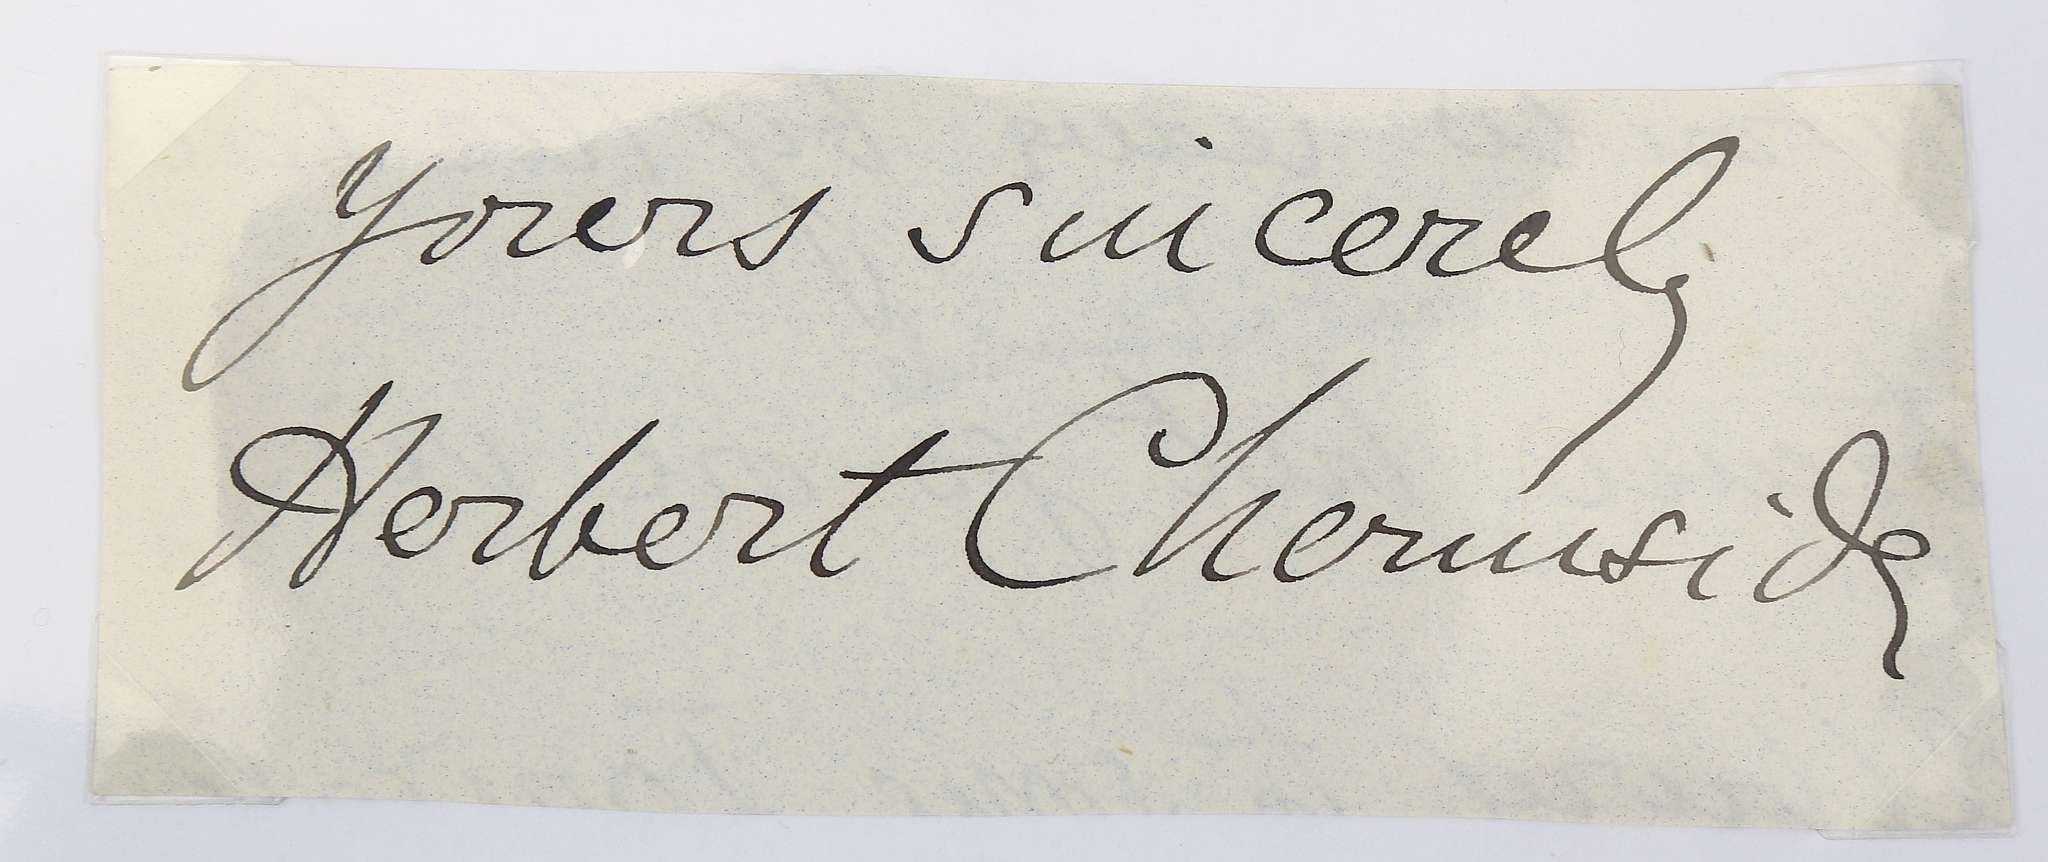 Yours sincerely
Herbert Chermside